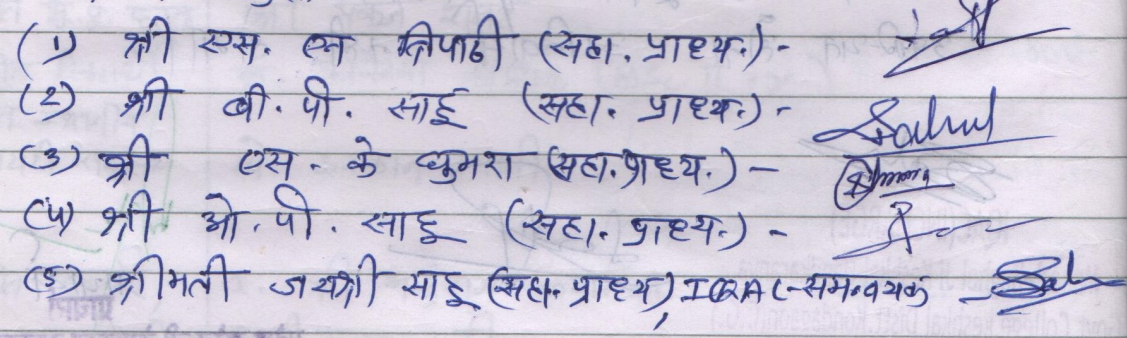 (1) श्री एस. एन त्रिपाठी (सहा. प्राध्य.) -
(2) श्री बी. पी. साहू (सहा. प्राध्य.) - Sahu
(3) श्री एस. के धुमरा (सहा. प्राध्य.) -
(4) श्री ओ. पी. साहू (सहा. प्राध्य.) -
(5) श्रीमती जयश्री साहू (सहा. प्राध्य), IQAC-समन्वयक -